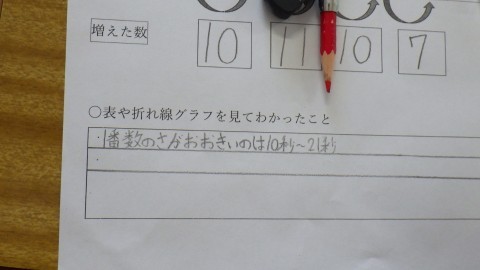 増えた数
10 11 10 7
○表や折れ線グラフを見てわかったこと
・1番数のさがおおきいのは10秒〜21秒
・